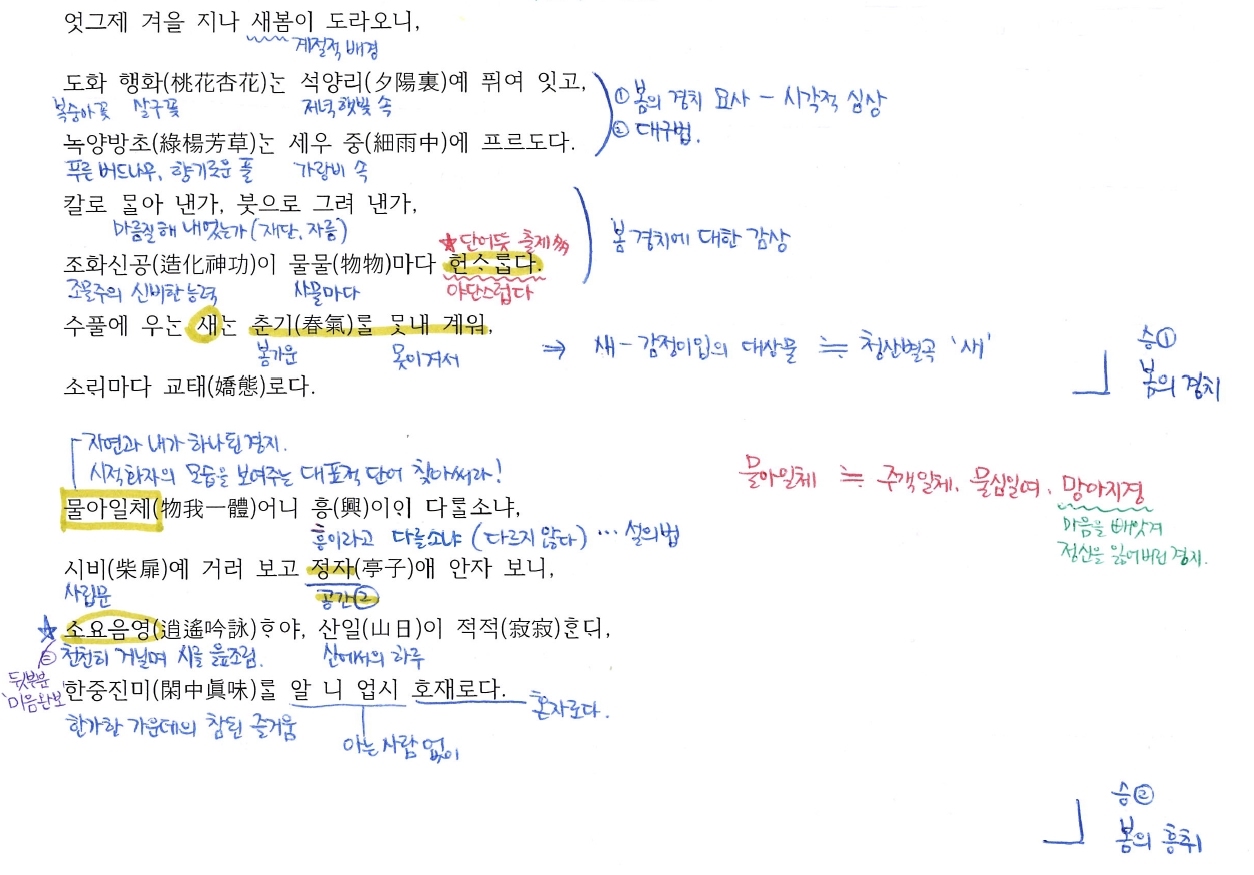 엇그제 겨을 지나 새봄이 도라오니,
계절적 배경
도화 행화(桃花杏花)는 석양리(夕陽裏)예 퓌여 잇고,
복숭아꽃 살구꽃 저녁 햇빛 속
① 봄의 경치 묘사 - 시각적 심상
② 대구법.
녹양방초(綠楊芳草)는 세우 중(細雨中)에 프르도다.
푸른 버드나무, 향기로운 풀 가랑비 속
칼로 ᄆᆞᆯ아 낸가, 붓으로 그려 낸가,
마름질해 내었는가 (재단, 자름)
봄 경치에 대한 감상
★ 단어뜻 출제 多
조화신공(造化神功)이 물물(物物)마다 헌ᄉᆞ롭다.
조물주의 신비한 능력 사물마다 야단스럽다
수풀에 우ᄂᆞᆫ 새ᄂᆞᆫ 춘기(春氣)ᄅᆞᆯ ᄆᆞᆺ내 계워,
봄기운 못이겨서
⇒ 새 - 감정이입의 대상물 ≒ 청산별곡 '새'
소ᄅᆡ마다 교태(嬌態)로다.
승①
봄의 경치
자연과 내가 하나된 경지.
시적화자의 모습을 보여주는 대표적 단어 찾아써라!
물아일체 ≒ 주객일체, 물심일여, 망아지경
마음을 빼앗겨
정신을 잃어버린 경지.
물아일체(物我一體)어니 흥(興)이ᄋᆡ 다ᄅᆞᆯ소냐,
흥이라고 다를소냐 (다르지 않다) … 설의법
시비(柴扉)예 거러 보고 정자(亭子)애 안자 보니,
사립문 공간②
★ 소요음영(逍遙吟詠)ᄒᆞ야, 산일(山日)이 적적(寂寂)ᄒᆞᆫᄃᆡ,
천천히 거닐며 시를 읊조림. 산에서의 하루
뒷부분
'미음완보'
한중진미(閑中眞味)ᄅᆞᆯ 알 니 업시 호재로다.
한가한 가운데의 참된 즐거움 아는 사람 없이 혼자로다.
승②
봄의 흥취